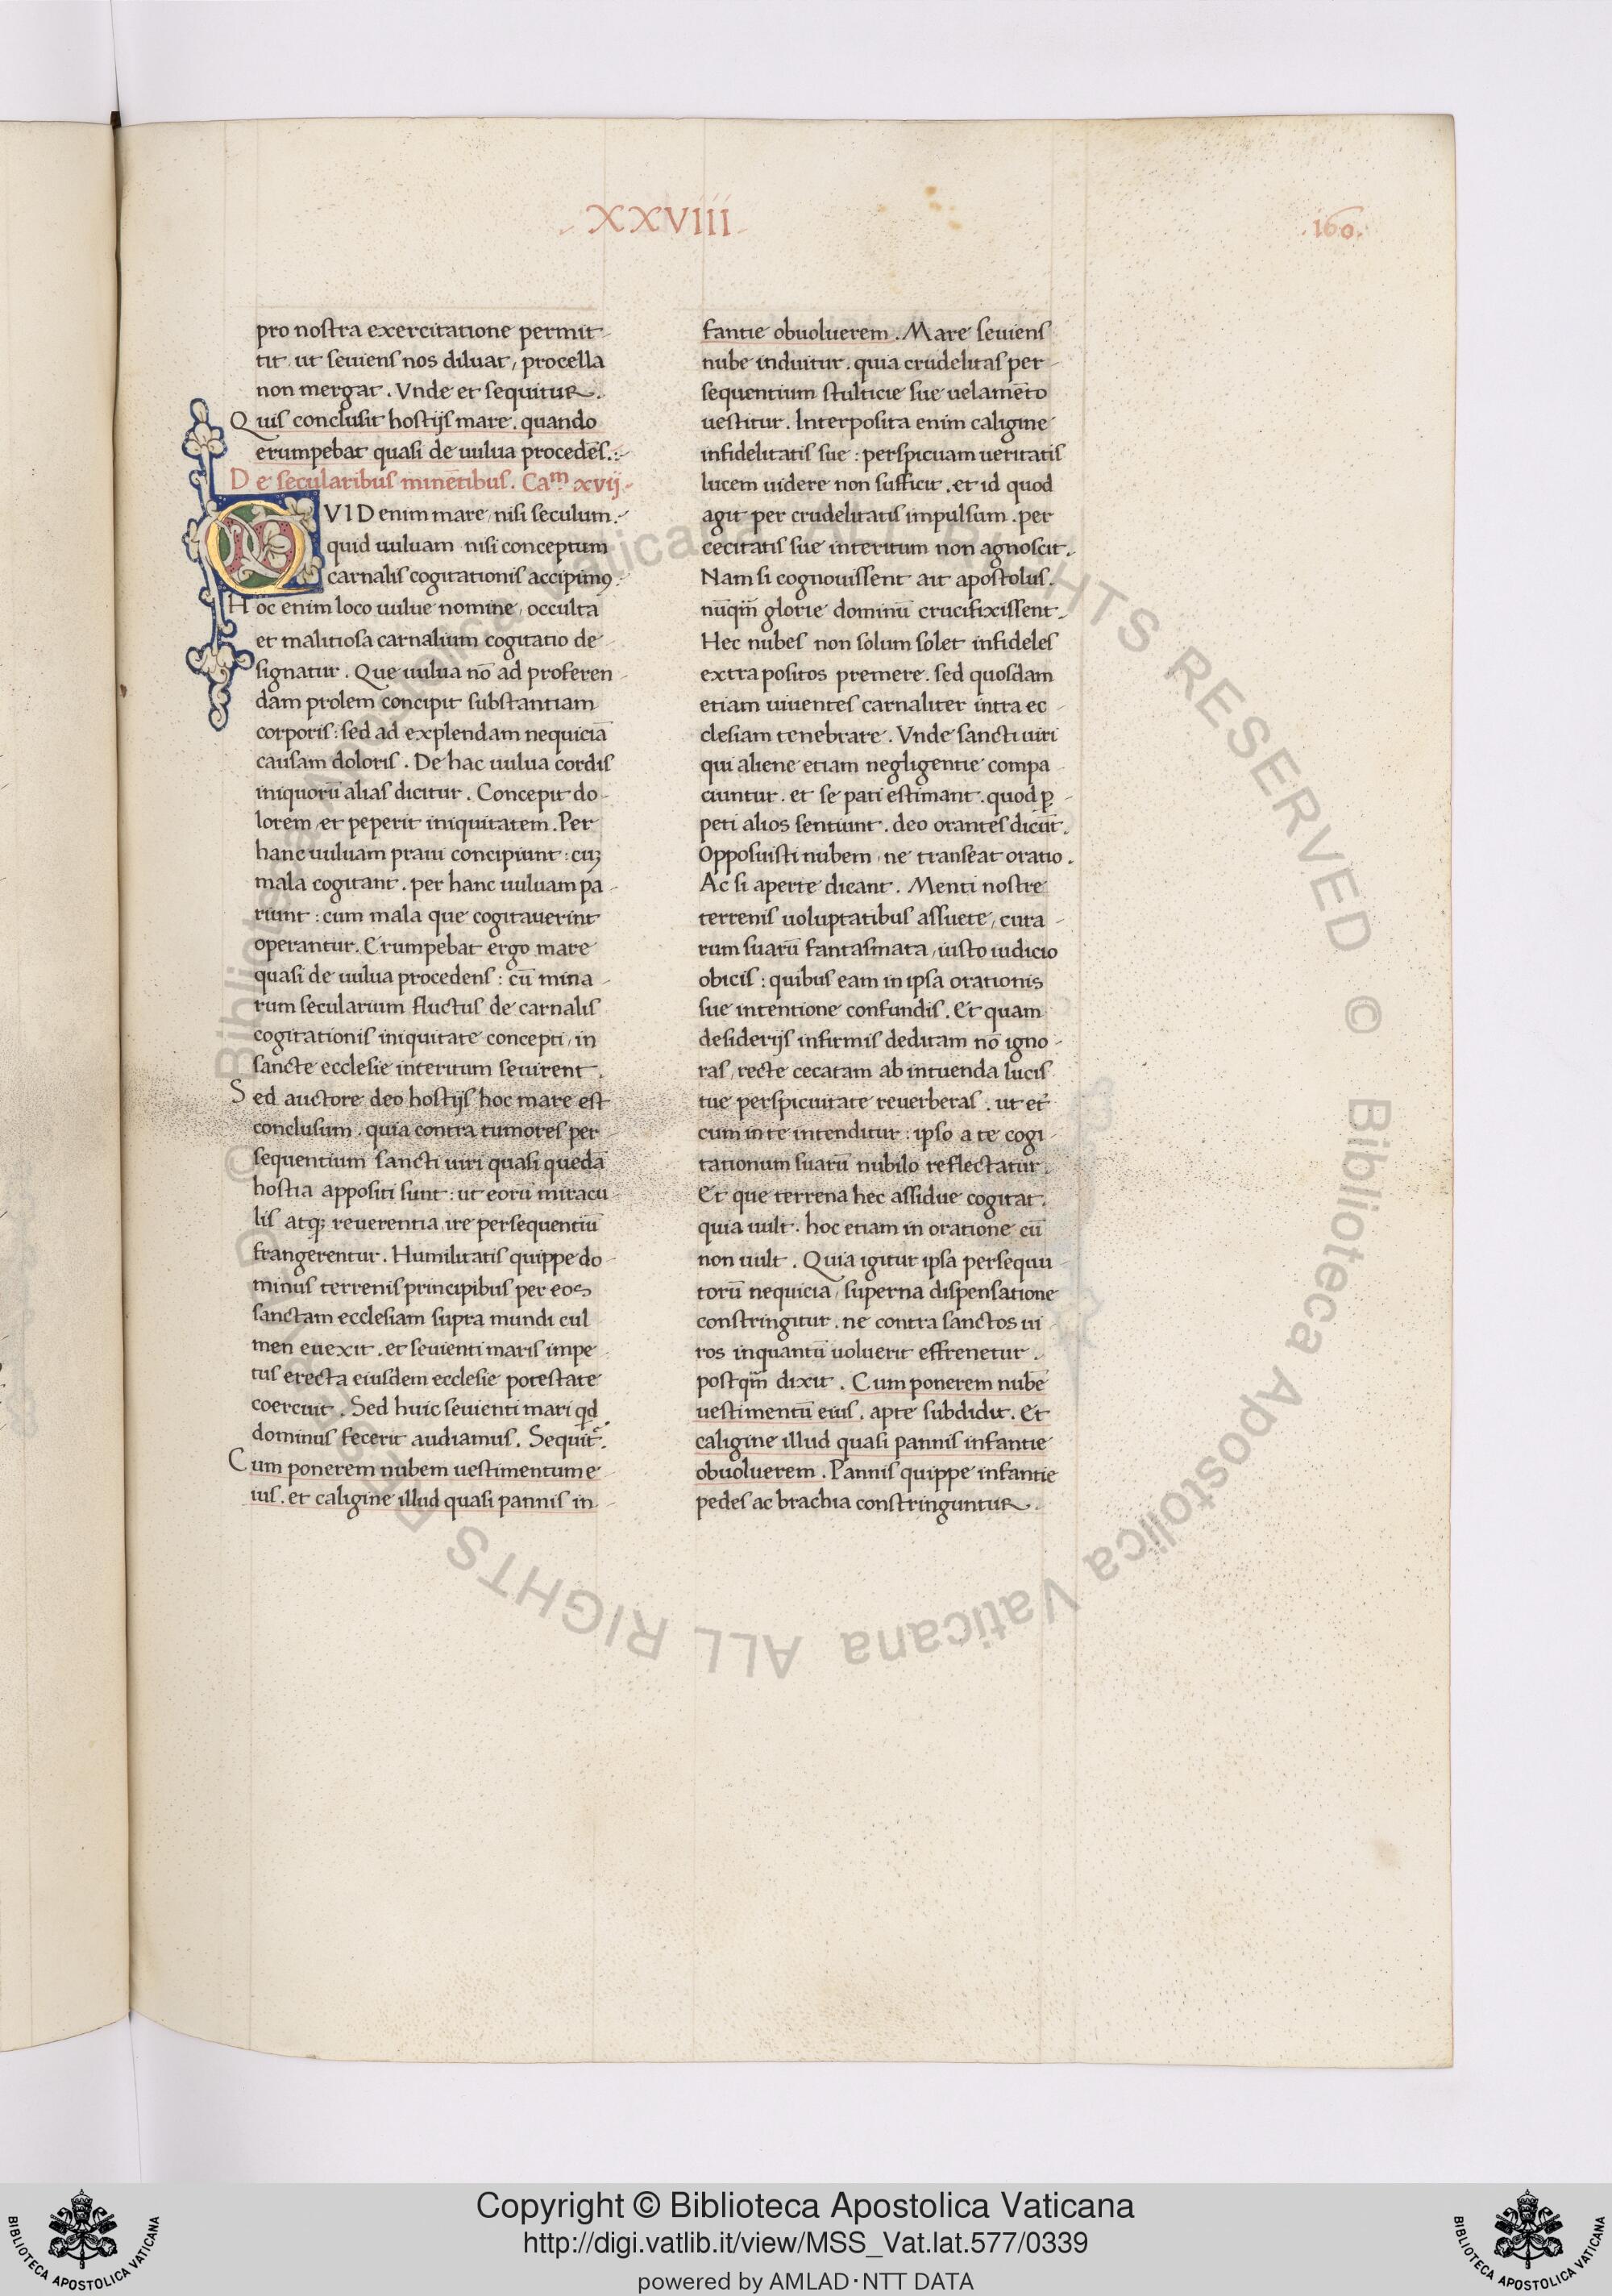 XXVIII
.160.
pro nostra exercitatione permit-
tit, ut seuiens nos diluat, procella
non mergat. Vnde et sequitur.
Quis conclusit hostijs mare. quando
erumpebat quasi de uulua procedēs.
De secularibus minētibus. Caᵐ xvij.
QVID enim mare, nisi seculum.
quid uuluam nisi conceptum
carnalis cogitationis accipimꝰ.
Hoc enim loco uulue nomine, occulta
et malitiosa carnalium cogitatio de-
signatur. Que uulua nō ad proferen-
dam prolem concipit substantiam
corporis: sed ad explendam nequiciā
causam doloris. De hac uulua cordis
iniquorū alias dicitur. Concepit do-
lorem et peperit iniquitatem. Per
hanc uuluam praui concipiunt: cuꝫ
mala cogitant. per hanc uuluam pa-
riunt: cum mala que cogitauerint
operantur. Erumpebat ergo mare
quasi de uulua procedens: cū mina-
rum secularium fluctus de carnalis
cogitationis iniquitate concepti, in
sancte ecclesie interitum seuirent.
Sed auctore deo hostijs hoc mare est
conclusum. quia contra tumores per-
sequentium sancti uiri quasi quedā
hostia appositi sunt: ut eorū miracu-
lis atqꝫ reuerentia, ire persequentiū
frangerentur. Humilitatis quippe do-
minus terrenis principibus per eos
sanctam ecclesiam supra mundi cul-
men euexit. et seuienti maris impe-
tus erecta eiusdem ecclesie potestate
coercuit. Sed huic seuienti mari qd
dominus fecerit audiamus. Sequit᷑.
Cum ponerem nubem uestimentum e-
ius. et caligine illud quasi pannis in-
fantie obuoluerem. Mare seuiens
nube induitur. quia crudelitas per-
sequentium stulticie sue uelamēto
uestitur. Interposita enim caligine
infidelitatis sue: perspicuam ueritatis
lucem uidere non sufficit. et id quod
agit per crudelitatis impulsum. per
cecitatis sue interitum non agnoscit.
Nam si cognouissent ait apostolus.
nūqm̄ glorie dominū crucifixissent.
Hec nubes non solum solet infideles
extra positos premere. sed quosdam
etiam uiuentes carnaliter intra ec-
clesiam tenebrare. Vnde sancti uiri
qui aliene etiam negligentie compa-
ciuntur. et se pati estimant. quod ꝑ-
peti alios sentiunt. deo orantes dicūt.
Opposuisti nubem, ne transeat oratio.
Ac si aperte dicant. Menti nostre
terrenis uoluptatibus assuete, cura-
rum suarū fantasmata, iusto iudicio
obicis: quibus eam in ipsa orationis
sue intentione confundis. Et quam
desiderijs infirmis deditam nō igno-
ras, recte cecatam ab intuenda lucis
tue perspicuitate reuerberas. ut et
cum in te intenditur: ipso a te cogi-
tationum suarū nubilo reflectatur.
Et que terrena hec assidue cogitat.
quia uult. hoc etiam in oratione cū
non uult. Quia igitur ipsa persequu-
torū nequicia, superna dispensatione
constringitur. ne contra sanctos ui-
ros inquantū uoluerit effrenetur.
postqm̄ dixit. Cum ponerem nubē
uestimentū eius. apte subdidit. Et
caligine illud quasi pannis infantie
obuoluerem. Pannis quippe infantie
pedes ac brachia constringuntur.
© Biblioteca Apostolica Vaticana ALL RIGHTS RESERVED
Copyright © Biblioteca Apostolica Vaticana
http://digi.vatlib.it/view/MSS_Vat.lat.577/0339
powered by AMLAD·NTT DATA
BIBLIOTECA APOSTOLICA VATICANA
BIBLIOTECA APOSTOLICA VATICANA